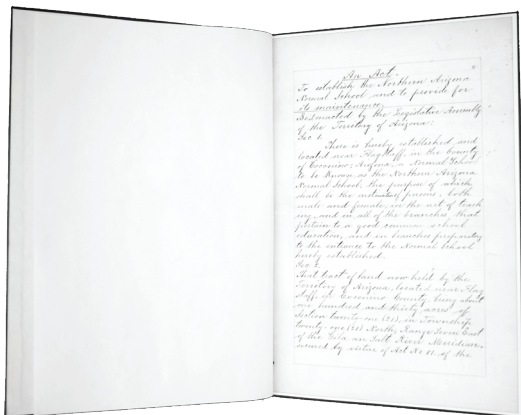 An Act.
To establish the Northern Arizona
Normal School and to provide for
its maintenance.
Be it enacted by the Legislative Assembly
of the Territory of Arizona:
Sec 1.
There is hereby established and
located near Flagstaff, in the County
of Coconino, Arizona, a Normal School
to be known as the Northern Arizona
Normal School, the purpose of which
shall be the instruction of persons, both
male and female, in the art of teach
ing, and in all of the branches that
pertain to a good common school
education, and in branches preparatory
to the entrance to the Normal School
hereby established.
Sec 2.
That tract of land now held by the
Territory of Arizona, located near Flag
staff, in Coconino County, being about
one hundred and thirty acres of
Section twenty-one (21), in Township
twenty-one (21) North, Range Seven East
of the Gila and Salt River Meridian,
secured by virtue of Act No of the